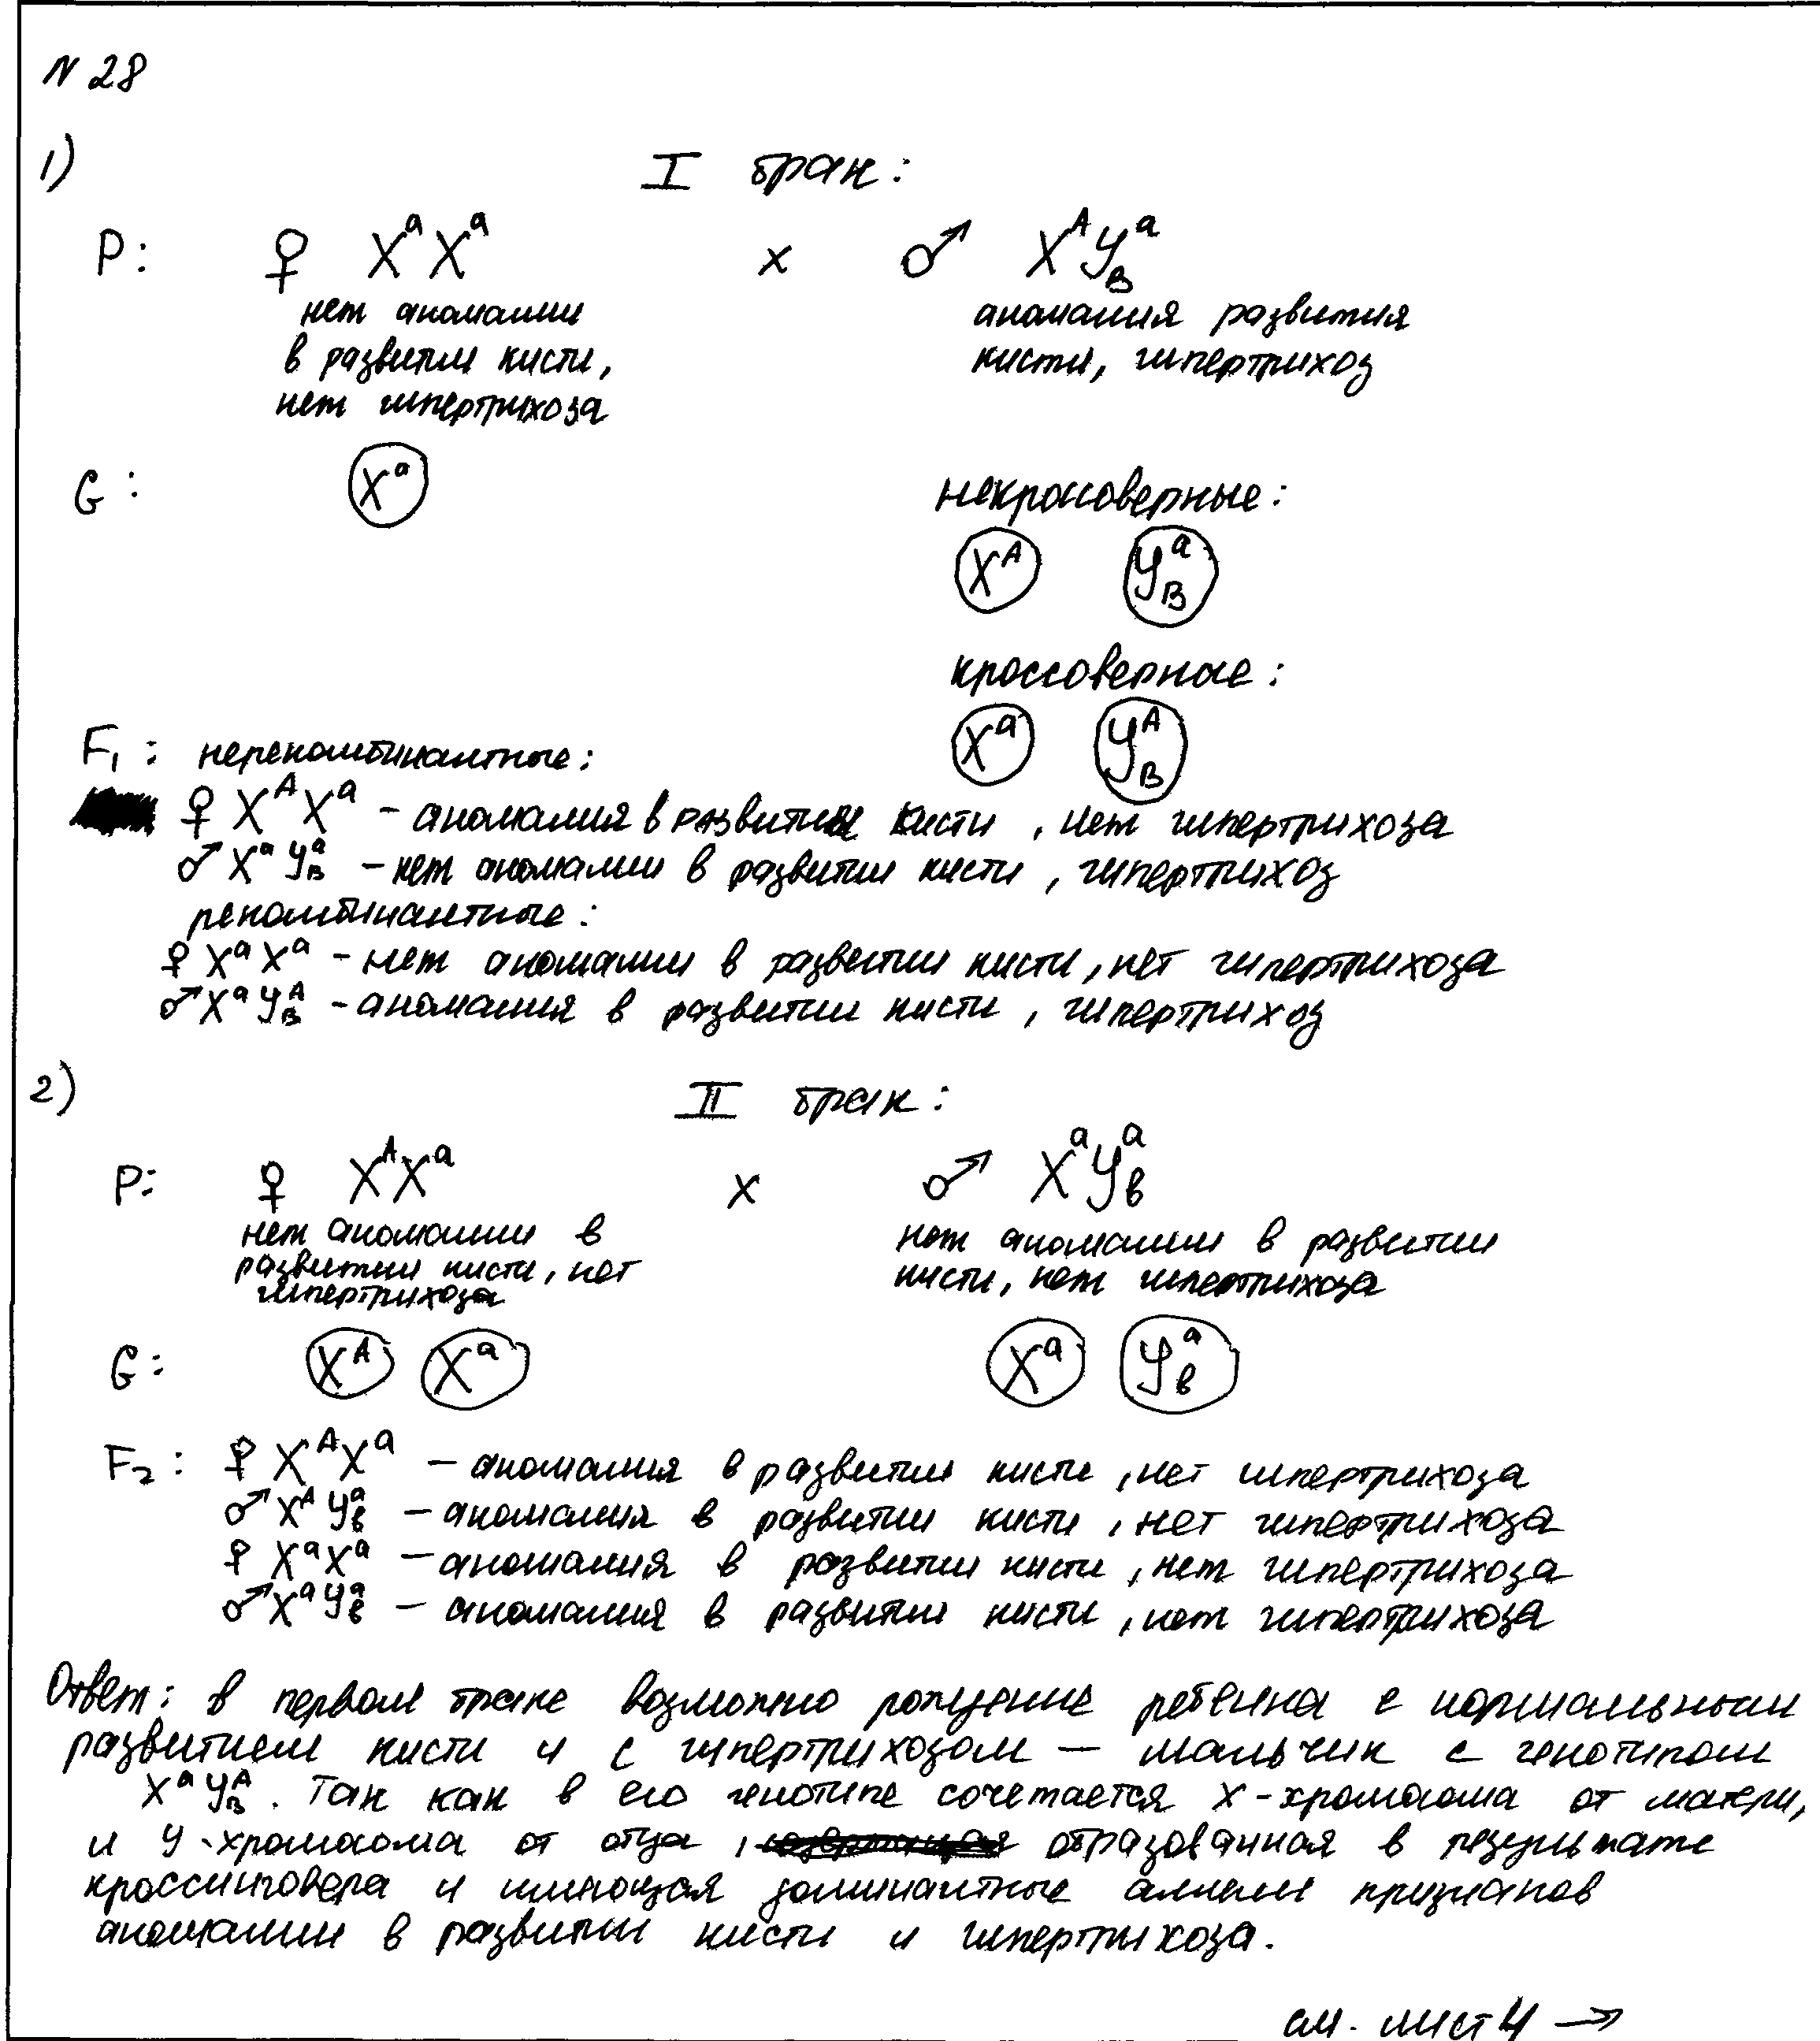 N 28
1) I брак:
P: ♀ XᵃXᵃ x ♂ XᴬYᵃ_B
нет аномалии
в развитии кисти,
нет гипертрихоза
аномалия развития
кисти, гипертрихоз
G: Xᵃ
некроссоверные:
Xᴬ Yᵃ_B
кроссоверные:
Xᵃ Yᴬ_B
F₁: нерекомбинантные:
♀ XᴬXᵃ - аномалия в развитии кисти, нет гипертрихоза
♂ XᵃYᵃ_B - нет аномалии в развитии кисти, гипертрихоз
рекомбинантные:
♀ XᵃXᵃ - нет аномалии в развитии кисти, нет гипертрихоза
♂ XᵃYᴬ_B - аномалия в развитии кисти, гипертрихоз
2) II брак:
P: ♀ XᴬXᵃ x ♂ XᵃYᵃ_в
нет аномалии в
развитии кисти, нет
гипертрихоза
нет аномалии в развитии
кисти, нет гипертрихоза
G: Xᴬ Xᵃ Xᵃ Yᵃ_в
F₂: ♀ XᴬXᵃ - аномалия в развитии кисти, нет гипертрихоза
♂ XᴬYᵃ_в - аномалия в развитии кисти, нет гипертрихоза
♀ XᵃXᵃ - аномалия в развитии кисти, нет гипертрихоза
♂ XᵃYᵃ_в - аномалия в развитии кисти, нет гипертрихоза
Ответ: в первом браке возможно рождение ребёнка с нормальным
развитием кисти и с гипертрихозом - мальчик с генотипом
XᵃYᴬ_B. Так как в его генотипе сочетается X-хромосома от матери,
и Y-хромосома от отца, образованная в результате
кроссинговера и имеющая доминантные аллели признаков
аномалии в развитии кисти и гипертрихоза.
см. лист 4 →